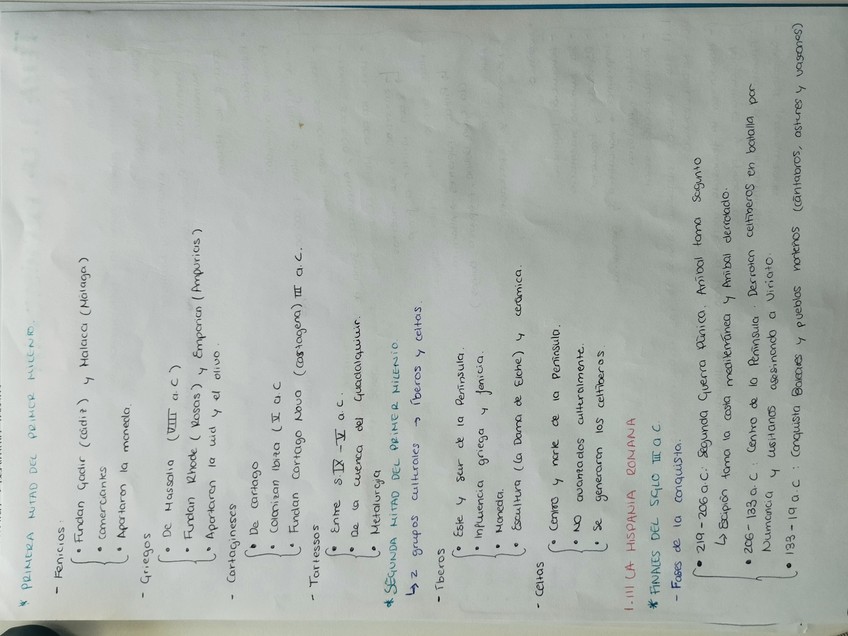 * PRIMERA MITAD DEL PRIMER MILENIO.
- Fenicios:
• Fundan Gadir (Cádiz) y Malaca (Málaga)
• Comerciantes
• Aportaron la moneda.
- Griegos
• De Massalia (VIII a.C)
• Fundan Rhode (Rosas) y Emporion (Ampurias)
• Aportaron la vid y el olivo.
- Cartagineses
• De Cartago
• Colonizan Ibiza (V a.C
• Fundan Cartago Nova (Cartagena) III a.C.
- Tartessos
• Entre s.IX - V a.C.
• De la cuenca del Guadalquivir.
• Metalurgia
* SEGUNDA MITAD DEL PRIMER MILENIO
↳ 2 grupos culturales → Íberos y celtas.
- Íberos
• Este y sur de la Península.
• Influencia griega y fenicia.
• Moneda.
• Escultura (la Dama de Elche) y cerámica.
- Celtas
• Centro y norte de la Península.
• No avanzados culturalmente.
• Se generaron los celtíberos.
1.III LA HISPANIA ROMANA
* FINALES DEL SIGLO III a.C.
- Fases de la conquista.
• 219-206 a.C: Segunda Guerra Púnica. Aníbal toma Sagunto
↳ Escipión toma la costa mediterránea y Aníbal derrotado.
• 206-133 a.C: Centro de la Península. Derrotan celtíberos en batalla por
Numancia y lusitanos asesinando a Viriato.
• 133-19 a.C: Conquista Baleares y pueblos norteños (cántabros, astures y vascones)